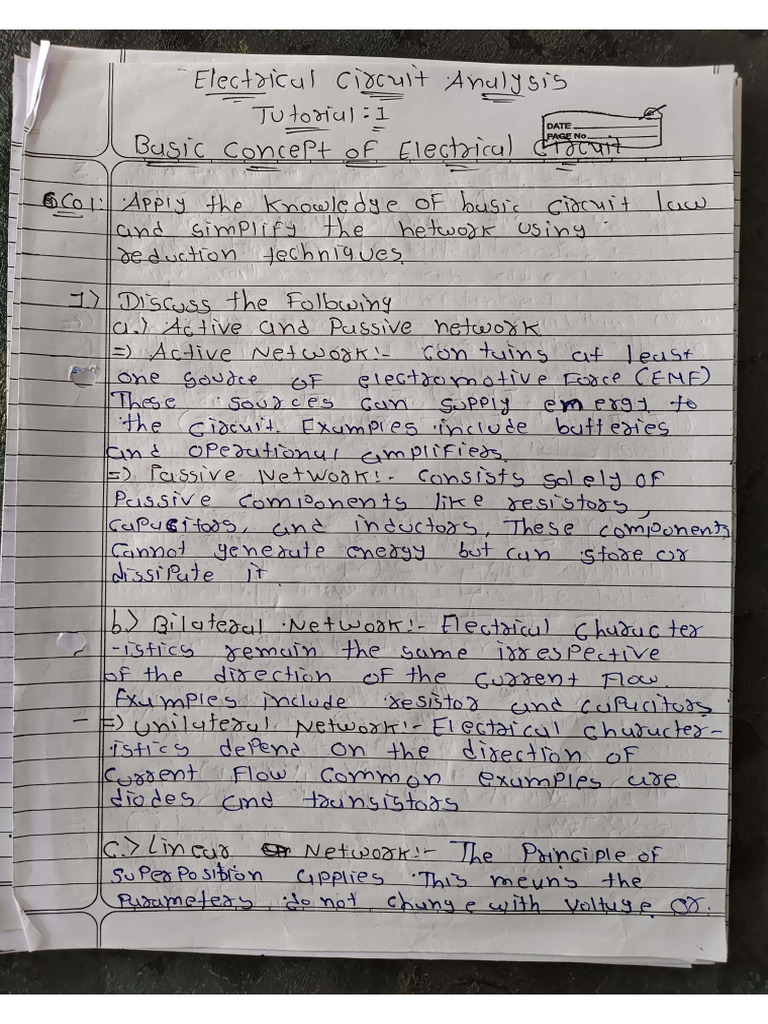 Electrical Circuit Analysis
Tutorial : 1
DATE
PAGE No
Basic Concept of Electrical Circuit
CO1: Apply the knowledge of basic circuit law
and simplify the network using
reduction techniques.
1) Discuss the Following
a.) Active and Passive network
=) Active Network:- Contains at least
one source of electromotive Force (EMF)
These sources can supply emergy to
the circuit. Examples include batteries
and operational amplifiers.
=) Passive Network:- Consists solely of
Passive components like resistors,
capacitors, and inductors, These components
Cannot generate energy but can store or
dissipate it.
b.) Bilateral Network:- Electrical Character
-istics remain the same irrespective
of the direction of the current Flow.
Examples include resistor and capacitors.
- =) Unilateral Network:- Electrical character-
istics depend on the direction of
current Flow. Common examples are
diodes and transistors
c.) Linear Network:- The Principle of
superposition applies. This means the
Parameters do not change with voltage or